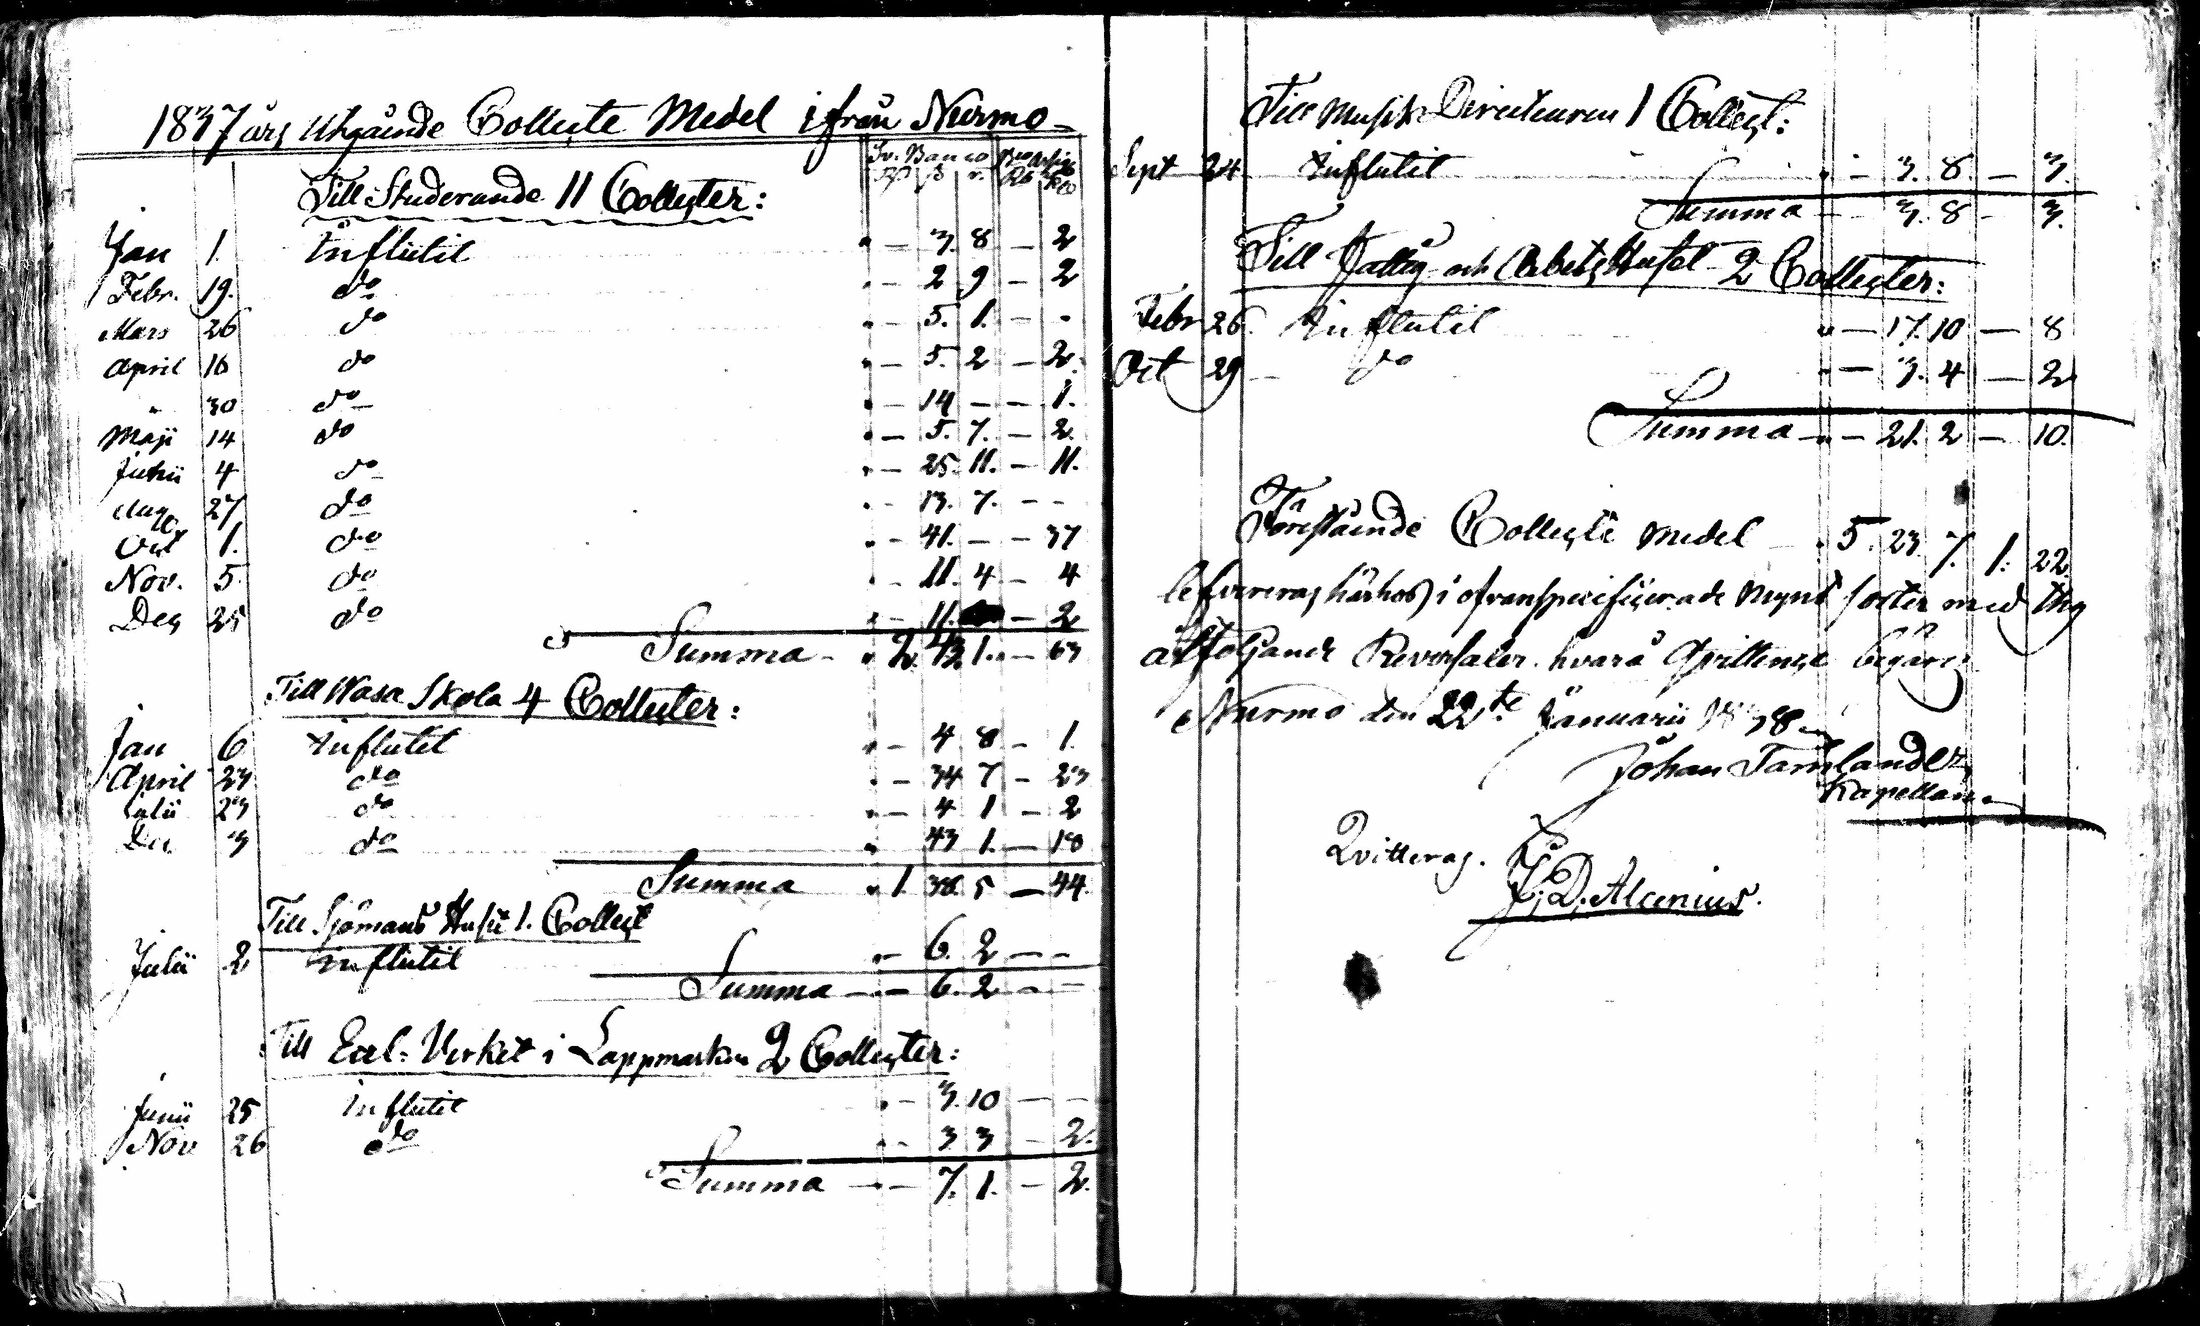 1837 års Utgående Collecte Medel ifrån Nurmo
Sv. Banco Rco Assig
RD ß r. Rb Kco
Till Studerande 11 Collecter:
Jan 1. Influtit " — 3. 8 — 2
Febr. 19. do " — 2 9 — 2
Mars 26 do " — 5. 1. — -
April 16 do " — 5. 2 — 2.
" 30 do " — 14 — — 1.
Maji 14 do " — 5. 7. — 2.
Junii 4 do " — 25. 11. — 11.
Aug 27 do " — 13. 7. — -
Oct 1. do " — 41. — — 37
Nov. 5. do " — 11. 4 — 4
Dec 25 do " — 11. — 2
Summa " 2. 43 1. — 63
Till Wasa Skola 4 Collecter:
Jan 6 Influtit " — 4 8 — 1.
April 23 do " — 34 7 — 23
Julii 23 do " — 4 1 — 2
Dec 3 do " 43 1. — 18
Summa " 1. 38. 5 — 44.
Till Sjömans Huset 1. Collect
Julii 2 Influtit " — 6. 2 — -
Summa — 6. 2 — -
Till Eccl. Verket i Lappmarken 2 Collecter:
Junii 25 Influtit " — 3. 10 — -
Nov 26 do " — 3 3 — 2.
Summa — 7. 1. — 2.
Till Musik Directeuren 1 Collect:
Sept 24 Influtit " — 3. 8. — 3.
Summa — 3. 8 — 3.
Till Fattig- och Arbets Huset 2 Collecter:
Febr 26. Influtit " — 17. 10 — 8
Oct 29 do " — 3. 4 — 2
Summa " — 21. 2 — 10.
Förestående Collecte Medel " 5. 23. 7. 1. 22.
lefvereras härhos i ofvanspecificerade Mynt sorter med
åtföljande Reversaler hvarå Qvittence begäres
Nurmo den 22te Januarii 1838
Johan Tamlander
Kapellan
Qvitteras.
J. D. Alcenius.